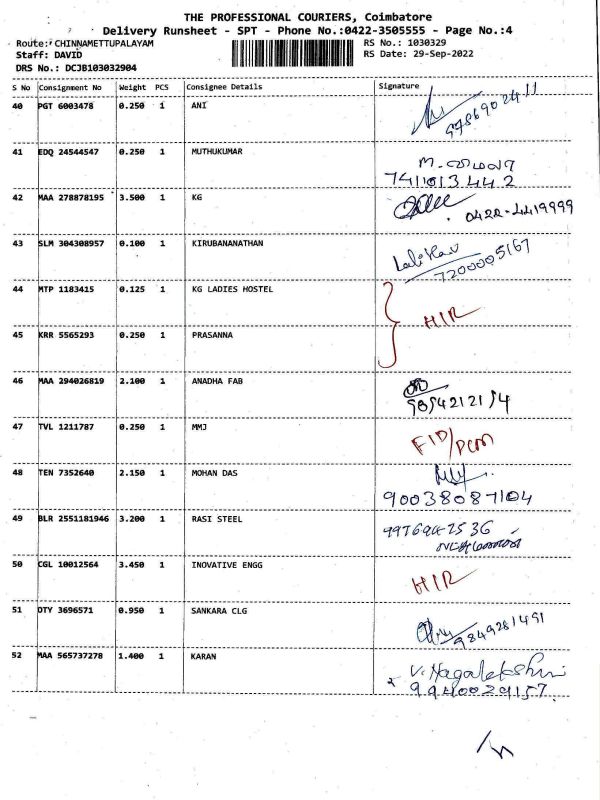 THE PROFESSIONAL COURIERS, Coimbatore
Delivery Runsheet - SPT - Phone No.:0422-3505555 - Page No.:4
Route: CHINNAMETTUPALAYAM
RS No.: 1030329
Staff: DAVID
RS Date: 29-Sep-2022
DRS No.: DCJB103032904
S No Consignment No Weight PCS Consignee Details Signature
40 PGT 6003478 0.250 1 ANI
41 EDQ 24544547 0.250 1 MUTHUKUMAR
7411013442
42 MAA 278878195 3.500 1 KG 0422-4419999
43 SLM 304308957 0.100 1 KIRUBANANATHAN
7200005167
44 MTP 1183415 0.125 1 KG LADIES HOSTEL
HIR
45 KRR 5565293 0.250 1 PRASANNA
46 MAA 294026819 2.100 1 ANADHA FAB
47 TVL 1211787 0.250 1 MMJ
48 TEN 7352640 2.150 1 MOHAN DAS
90038087104
49 BLR 2551181946 3.200 1 RASI STEEL
50 CGL 10012564 3.450 1 INOVATIVE ENGG HIR
51 DTY 3696571 0.950 1 SANKARA CLG 9849281491
52 MAA 565737278 1.400 1 KARAN V. Nagalakshmi
9940029157